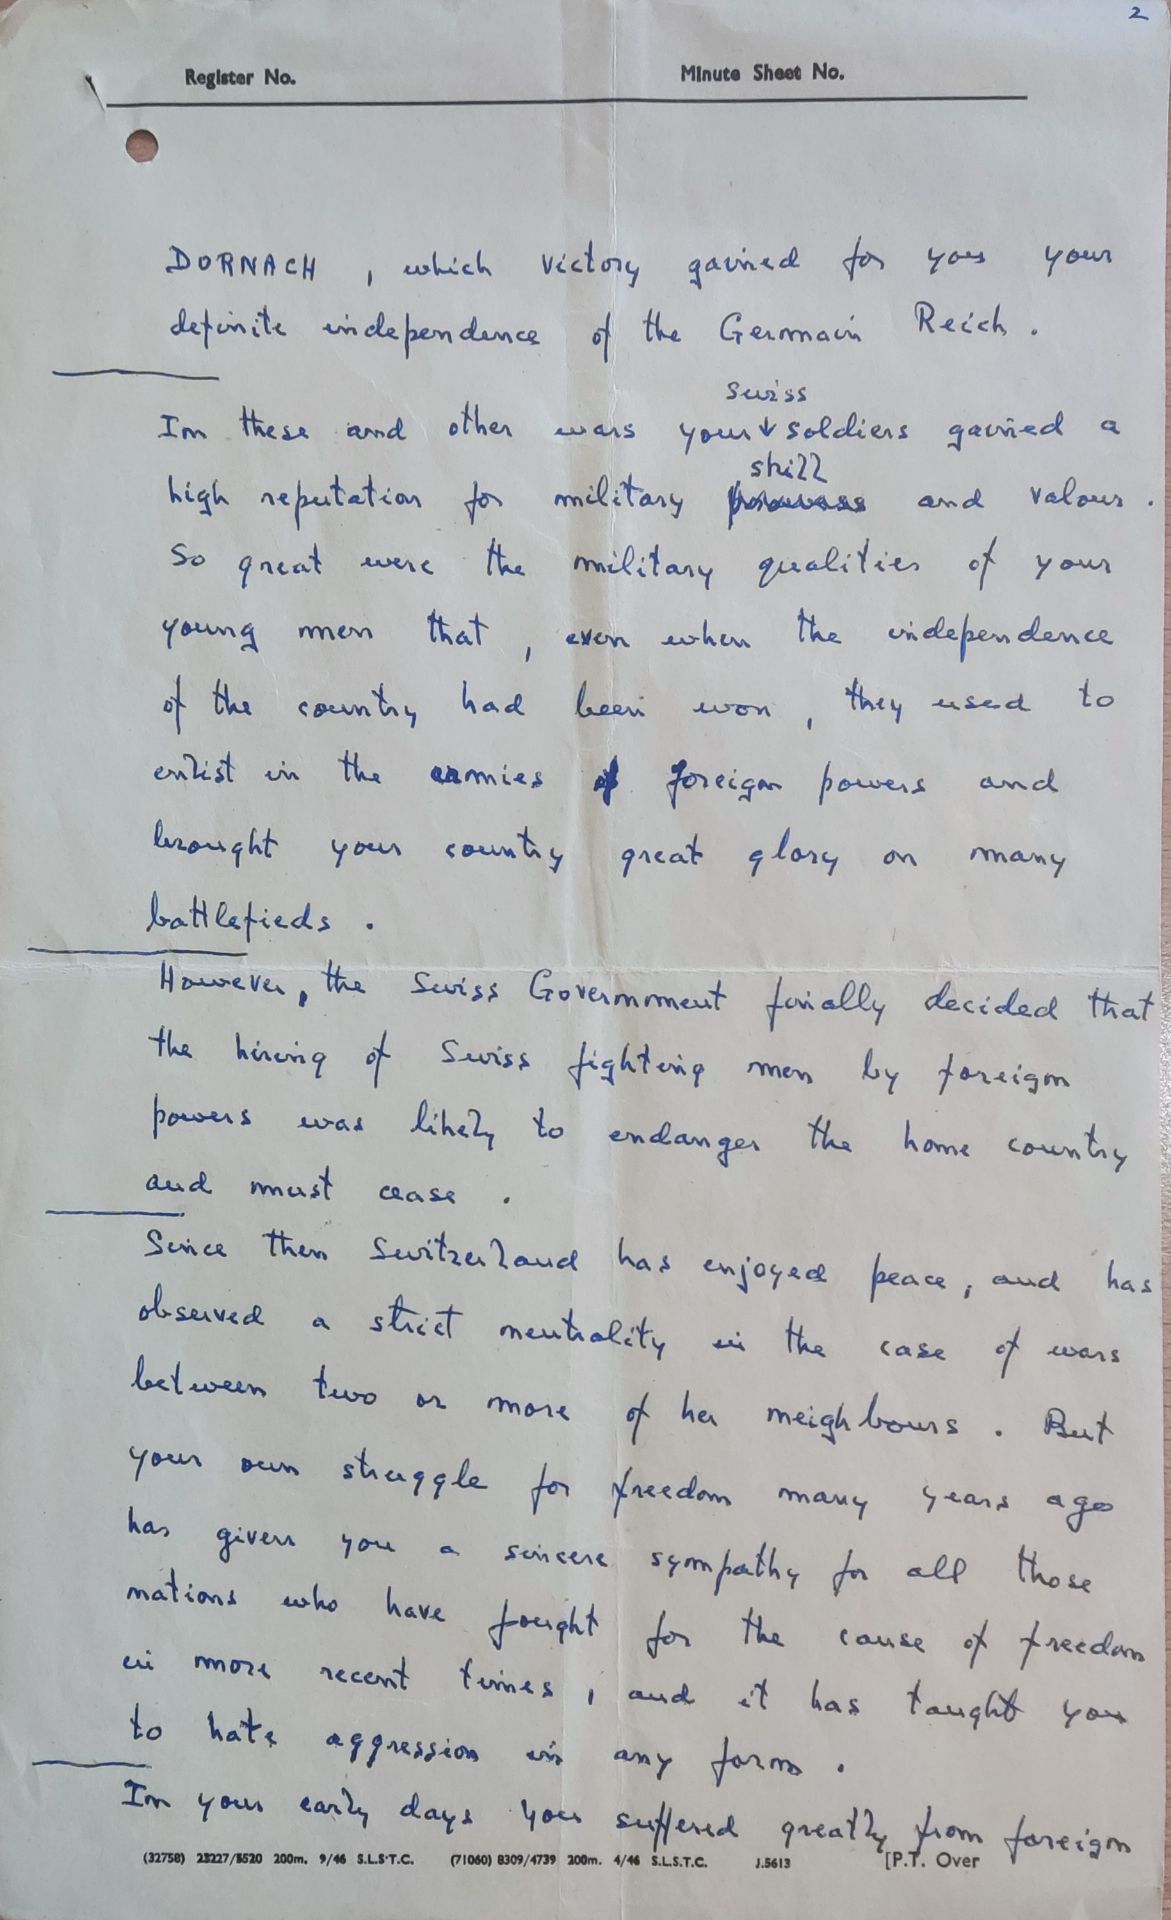 2
Register No. Minute Sheet No.
DORNACH, which victory gained for you your
definite independence of the Germain Reich.
Swiss
In these and other wars your ↓ soldiers gained a
skill
high reputation for military prowess and valour.
So great were the military qualities of your
young men that, even when the independence
of the country had been won, they used to
enlist in the armies of foreign powers and
brought your country great glory on many
battlefieds.
However, the Swiss Government finally decided that
the hiring of Swiss fighting men by foreign
powers was likely to endanger the home country
and must cease.
Since then Switzerland has enjoyed peace, and has
observed a strict neutrality in the case of wars
between two or more of her neighbours. But
your own struggle for freedom many years ago
has given you a sincere sympathy for all those
nations who have fought for the cause of freedom
in more recent times, and it has taught you
to hate aggression in any form.
In your early days you suffered greatly from foreign
(32758) 23227/5520 200m. 9/46 S.L.S.T.C. (71060) 8309/4739 200m. 4/46 S.L.S.T.C. J.5613 [P.T. Over